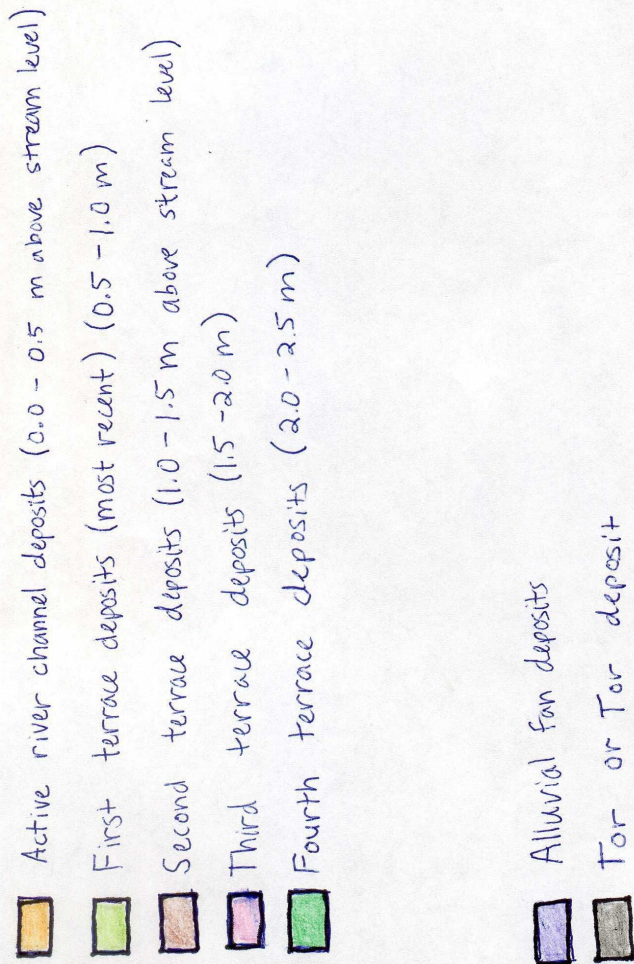 Active river channel deposits (0.0 - 0.5 m above stream level)
First terrace deposits (most recent) (0.5 - 1.0 m)
Second terrace deposits (1.0 - 1.5 m above stream level)
Third terrace deposits (1.5 - 2.0 m)
Fourth terrace deposits (2.0 - 2.5 m)
Alluvial fan deposits
Tor or Tor deposit